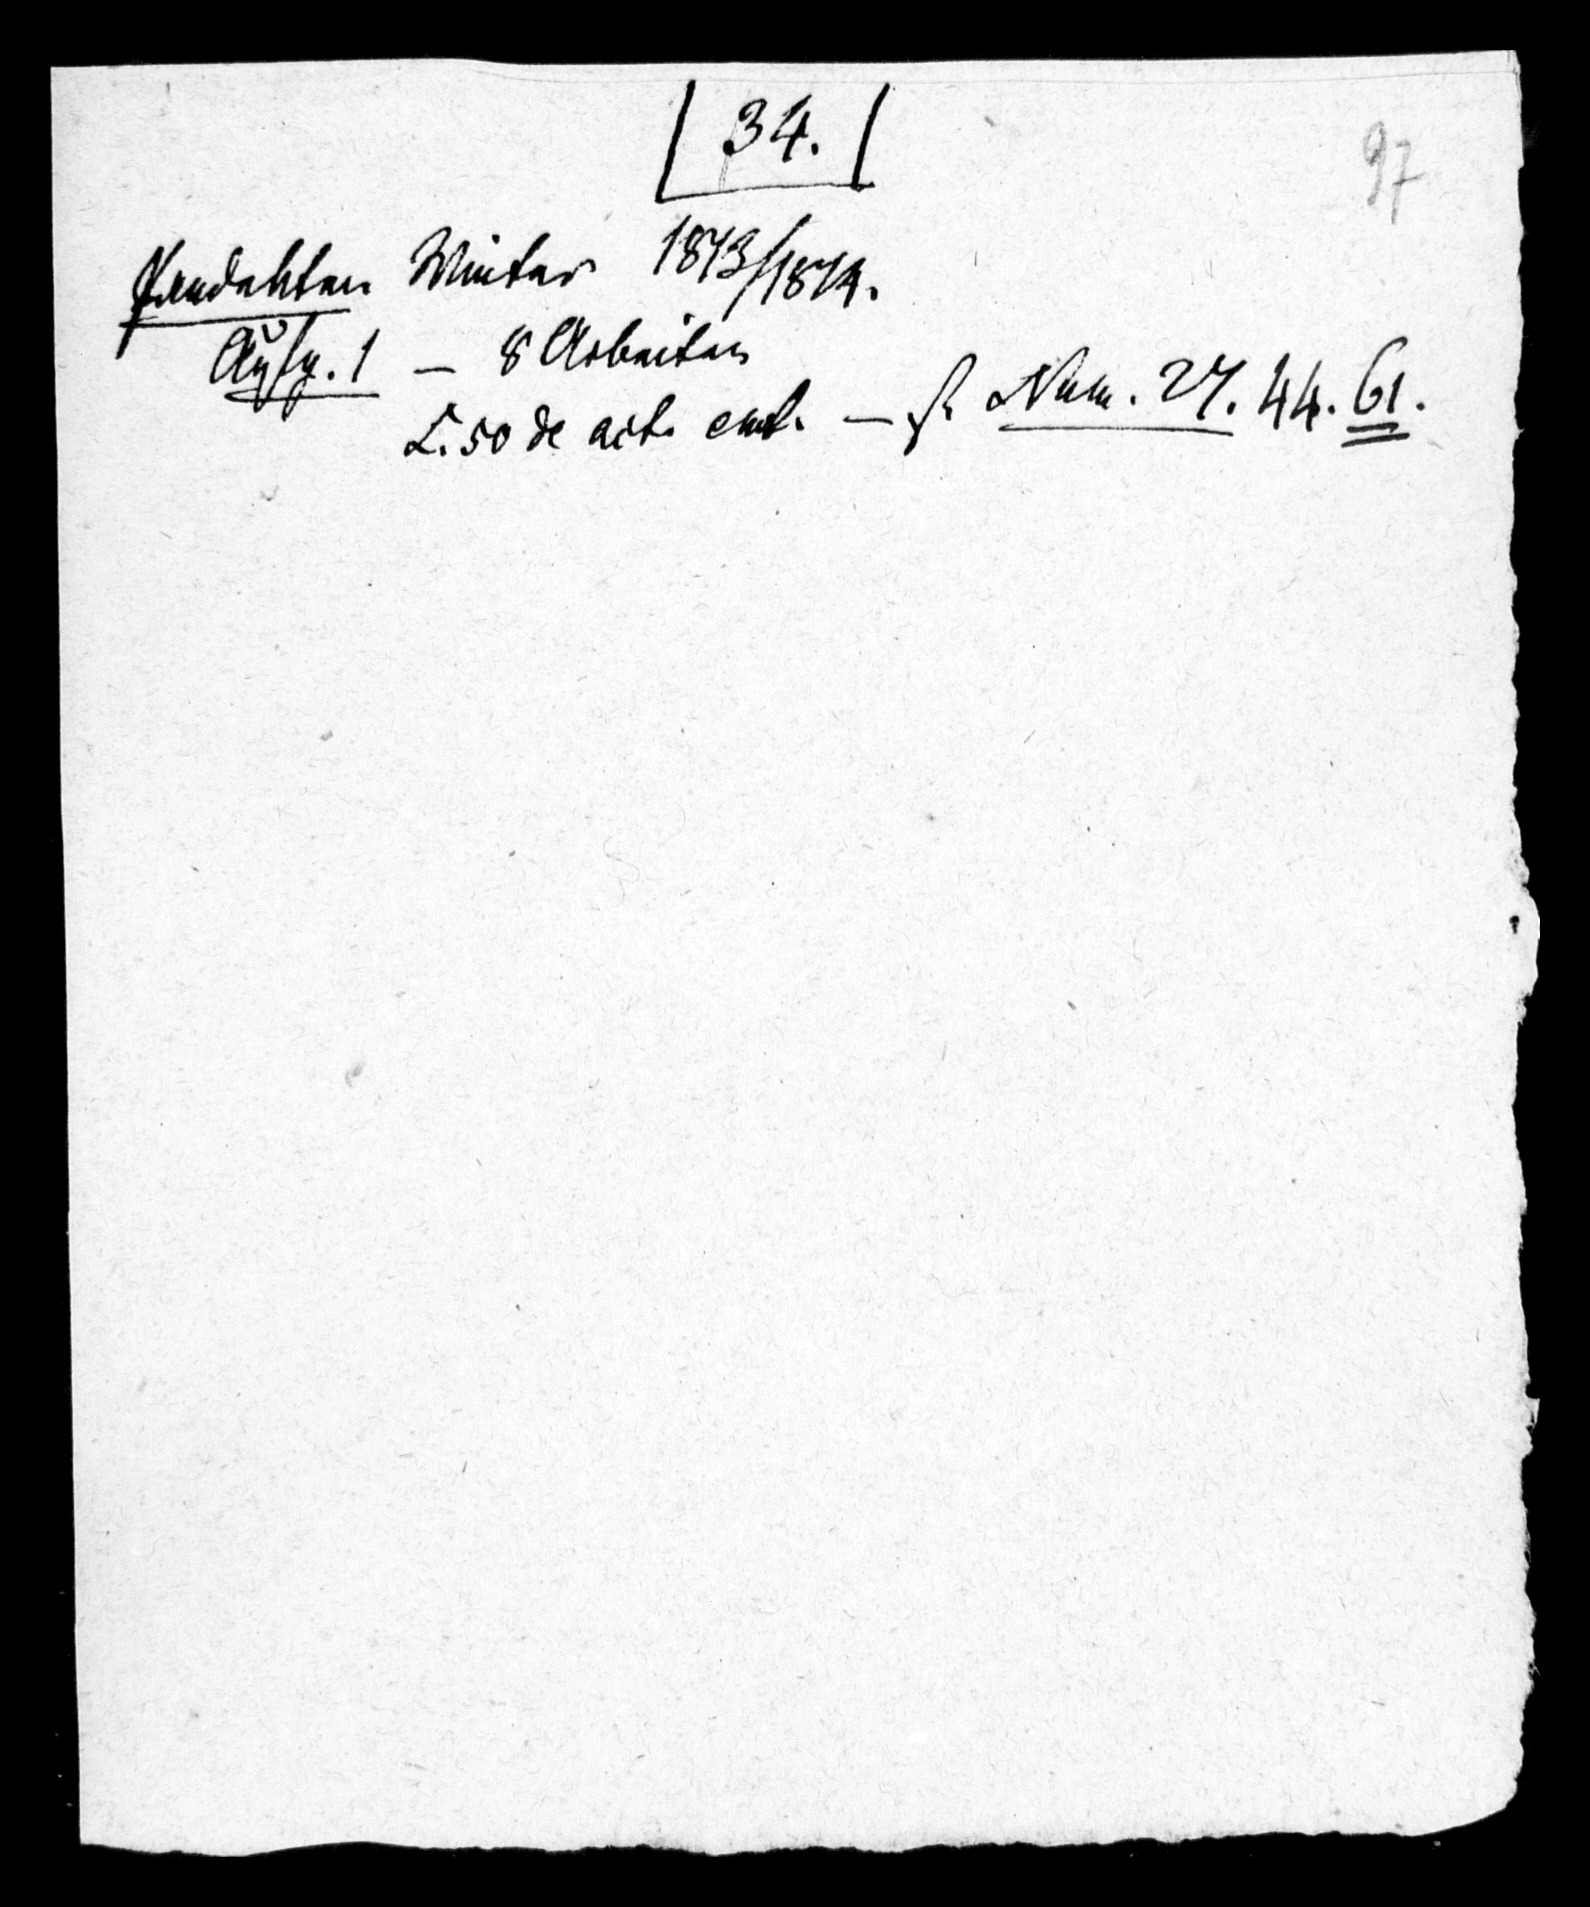 34.
97
Pandekten Winter 1873/1874.
Aufg. 1 — 8 Arbeiten
L. 50 de act. emt. — f. Num. 27. 44. 61.